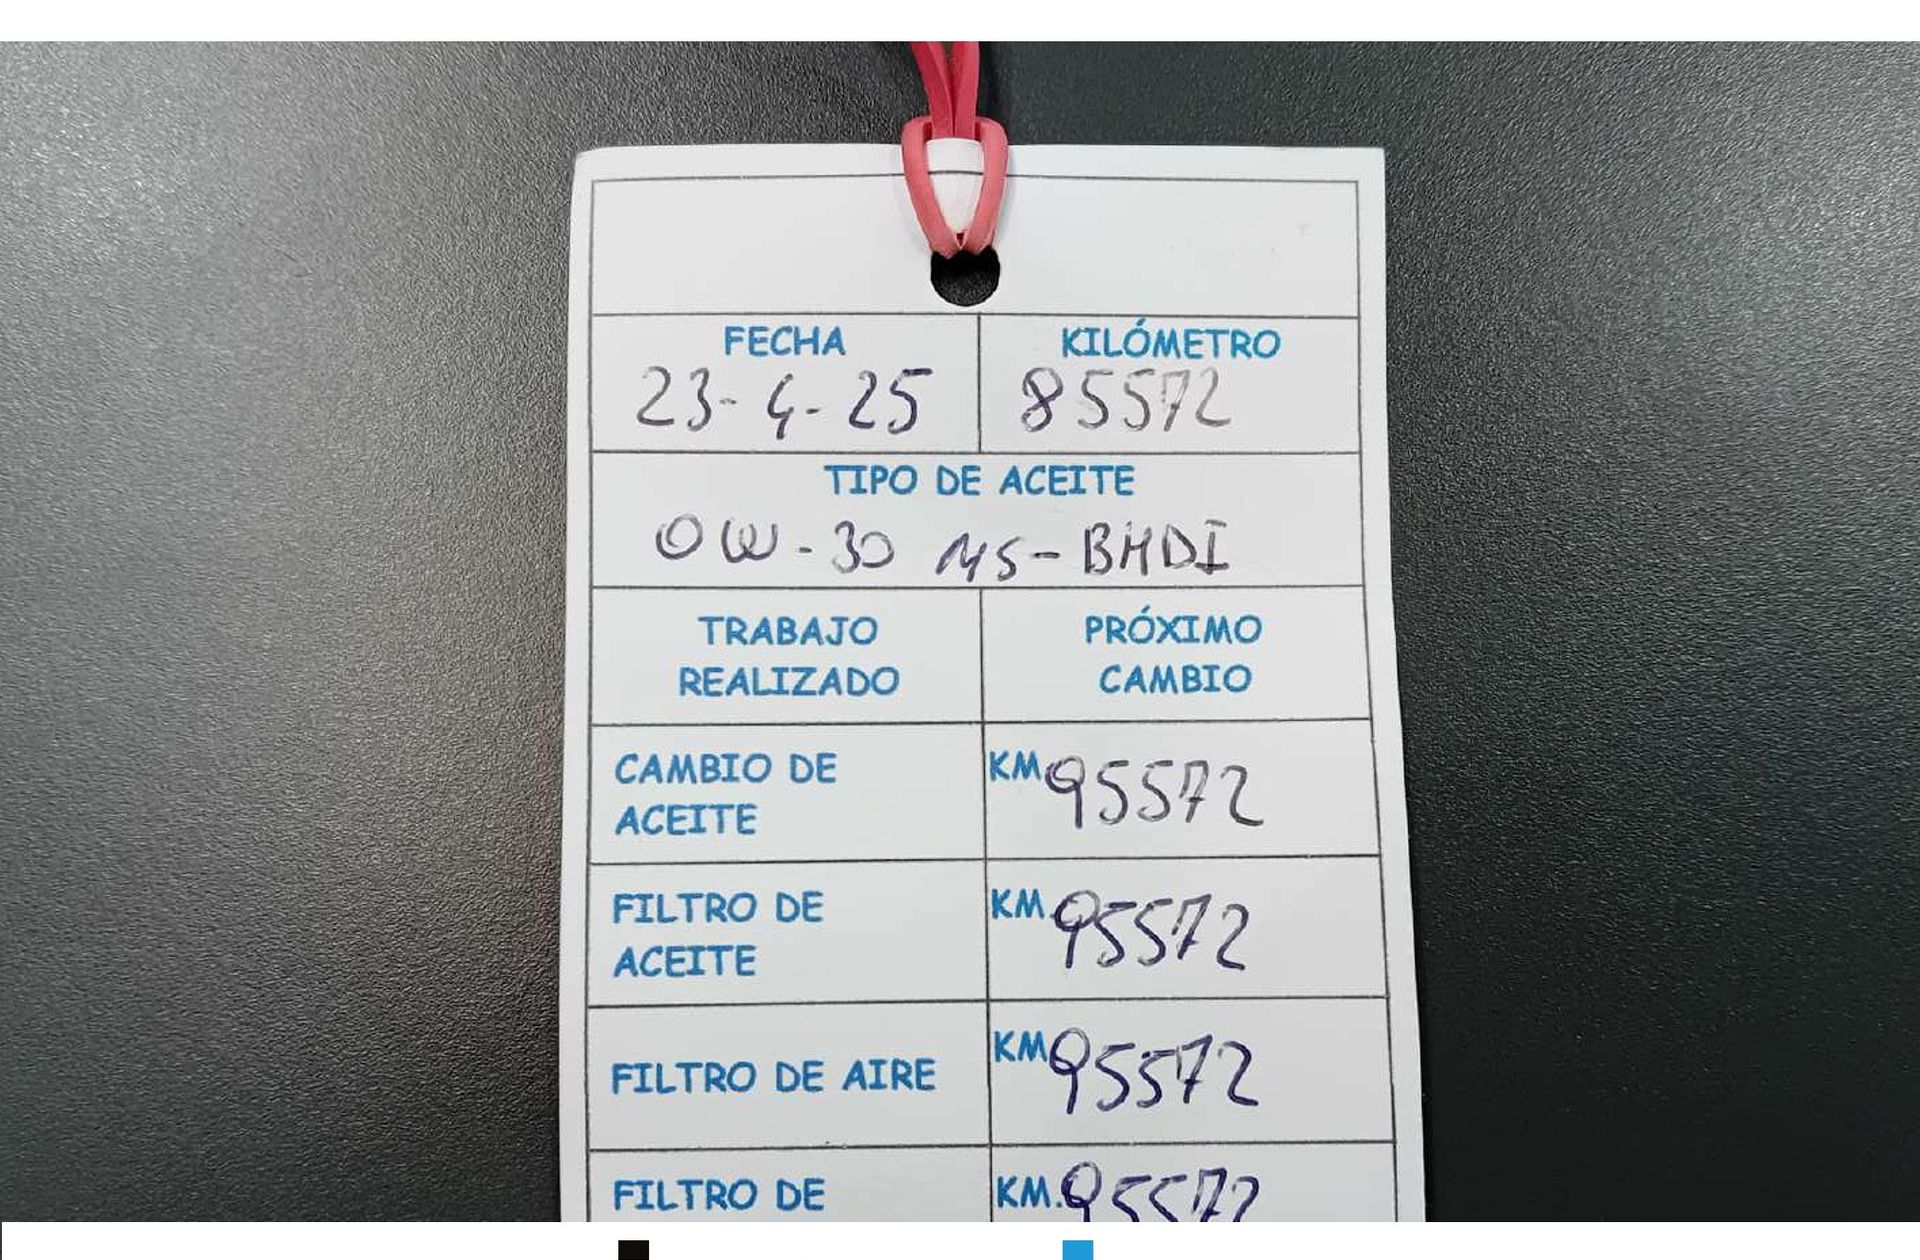 FECHA KILÓMETRO
23-4-25 85572
TIPO DE ACEITE
0W-30 MS-BHDI
TRABAJO PRÓXIMO
REALIZADO CAMBIO
CAMBIO DE KM 95572
ACEITE
FILTRO DE KM. 95572
ACEITE
FILTRO DE AIRE KM 95572
FILTRO DE KM. 95572